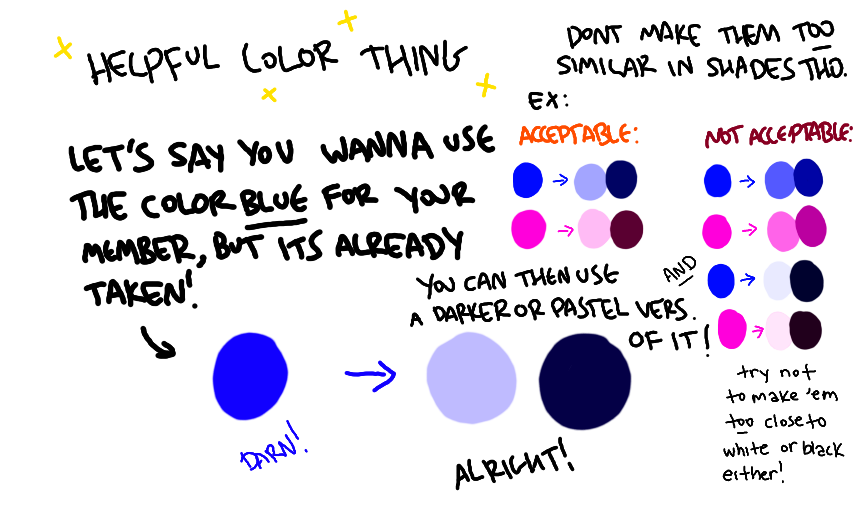 HELPFUL COLOR THING
LET'S SAY YOU WANNA USE
THE COLOR BLUE FOR YOUR
MEMBER, BUT ITS ALREADY
TAKEN!
DARN!
YOU CAN THEN USE
A DARKER OR PASTEL VERS.
OF IT!
ALRIGHT!
DONT MAKE THEM TOO
SIMILAR IN SHADES THO.
EX:
ACCEPTABLE:
NOT ACCEPTABLE:
AND
try not
to make 'em
too close to
white or black
either!